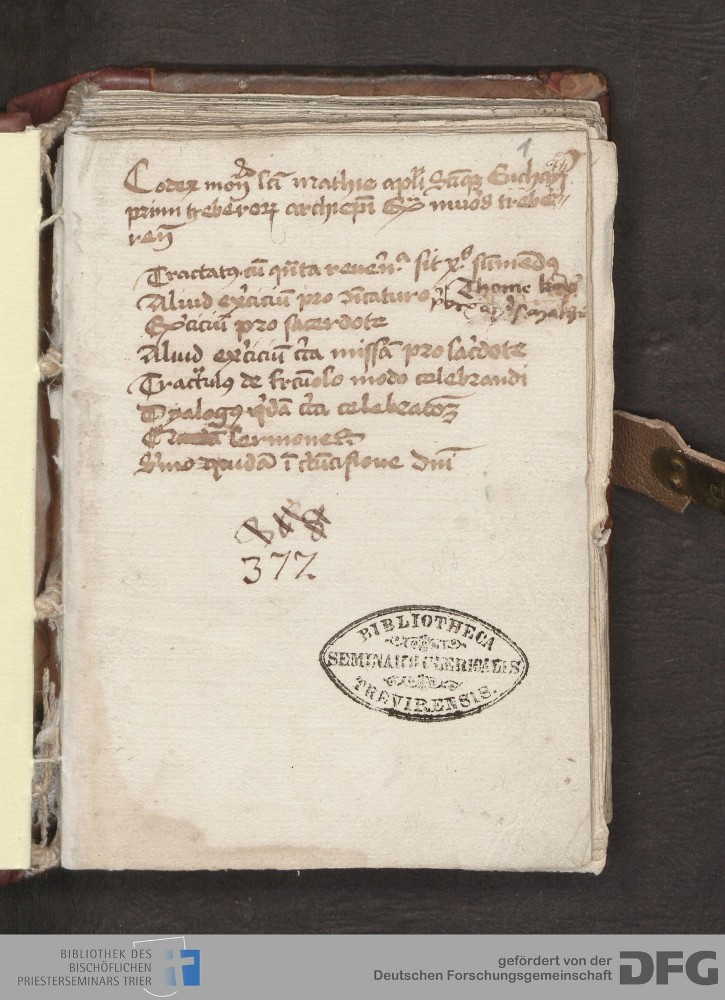 1
Codex moñ sci mathie apli sciqz Eucharij
primi treberorz archiepi Ex muros trebe=
reñ
Tractatus cu qnta reuerna sit xps sumendus
Aliud exciciu pro Thome
Exciciu pro sacerdote
Aliud exciciu cca missa pro sacdote
Tractulus de modo celebrandi
Dyalogus qda cca celebratoz
sermones
Smo quida i dni
377.
BIBLIOTHECA
SEMINARII CLERICALIS
TREVIRENSIS.
BIBLIOTHEK DES
BISCHÖFLICHEN
PRIESTERSEMINARS TRIER
gefördert von der
Deutschen Forschungsgemeinschaft
DFG